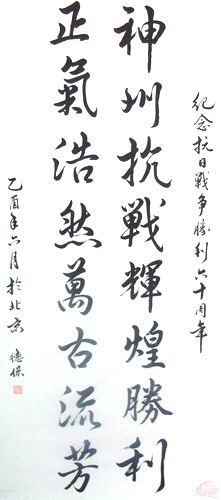 紀念抗日戰爭勝利六十周年
神州抗戰輝煌勝利
正氣浩然萬古流芳
乙酉年六月於北京 德保